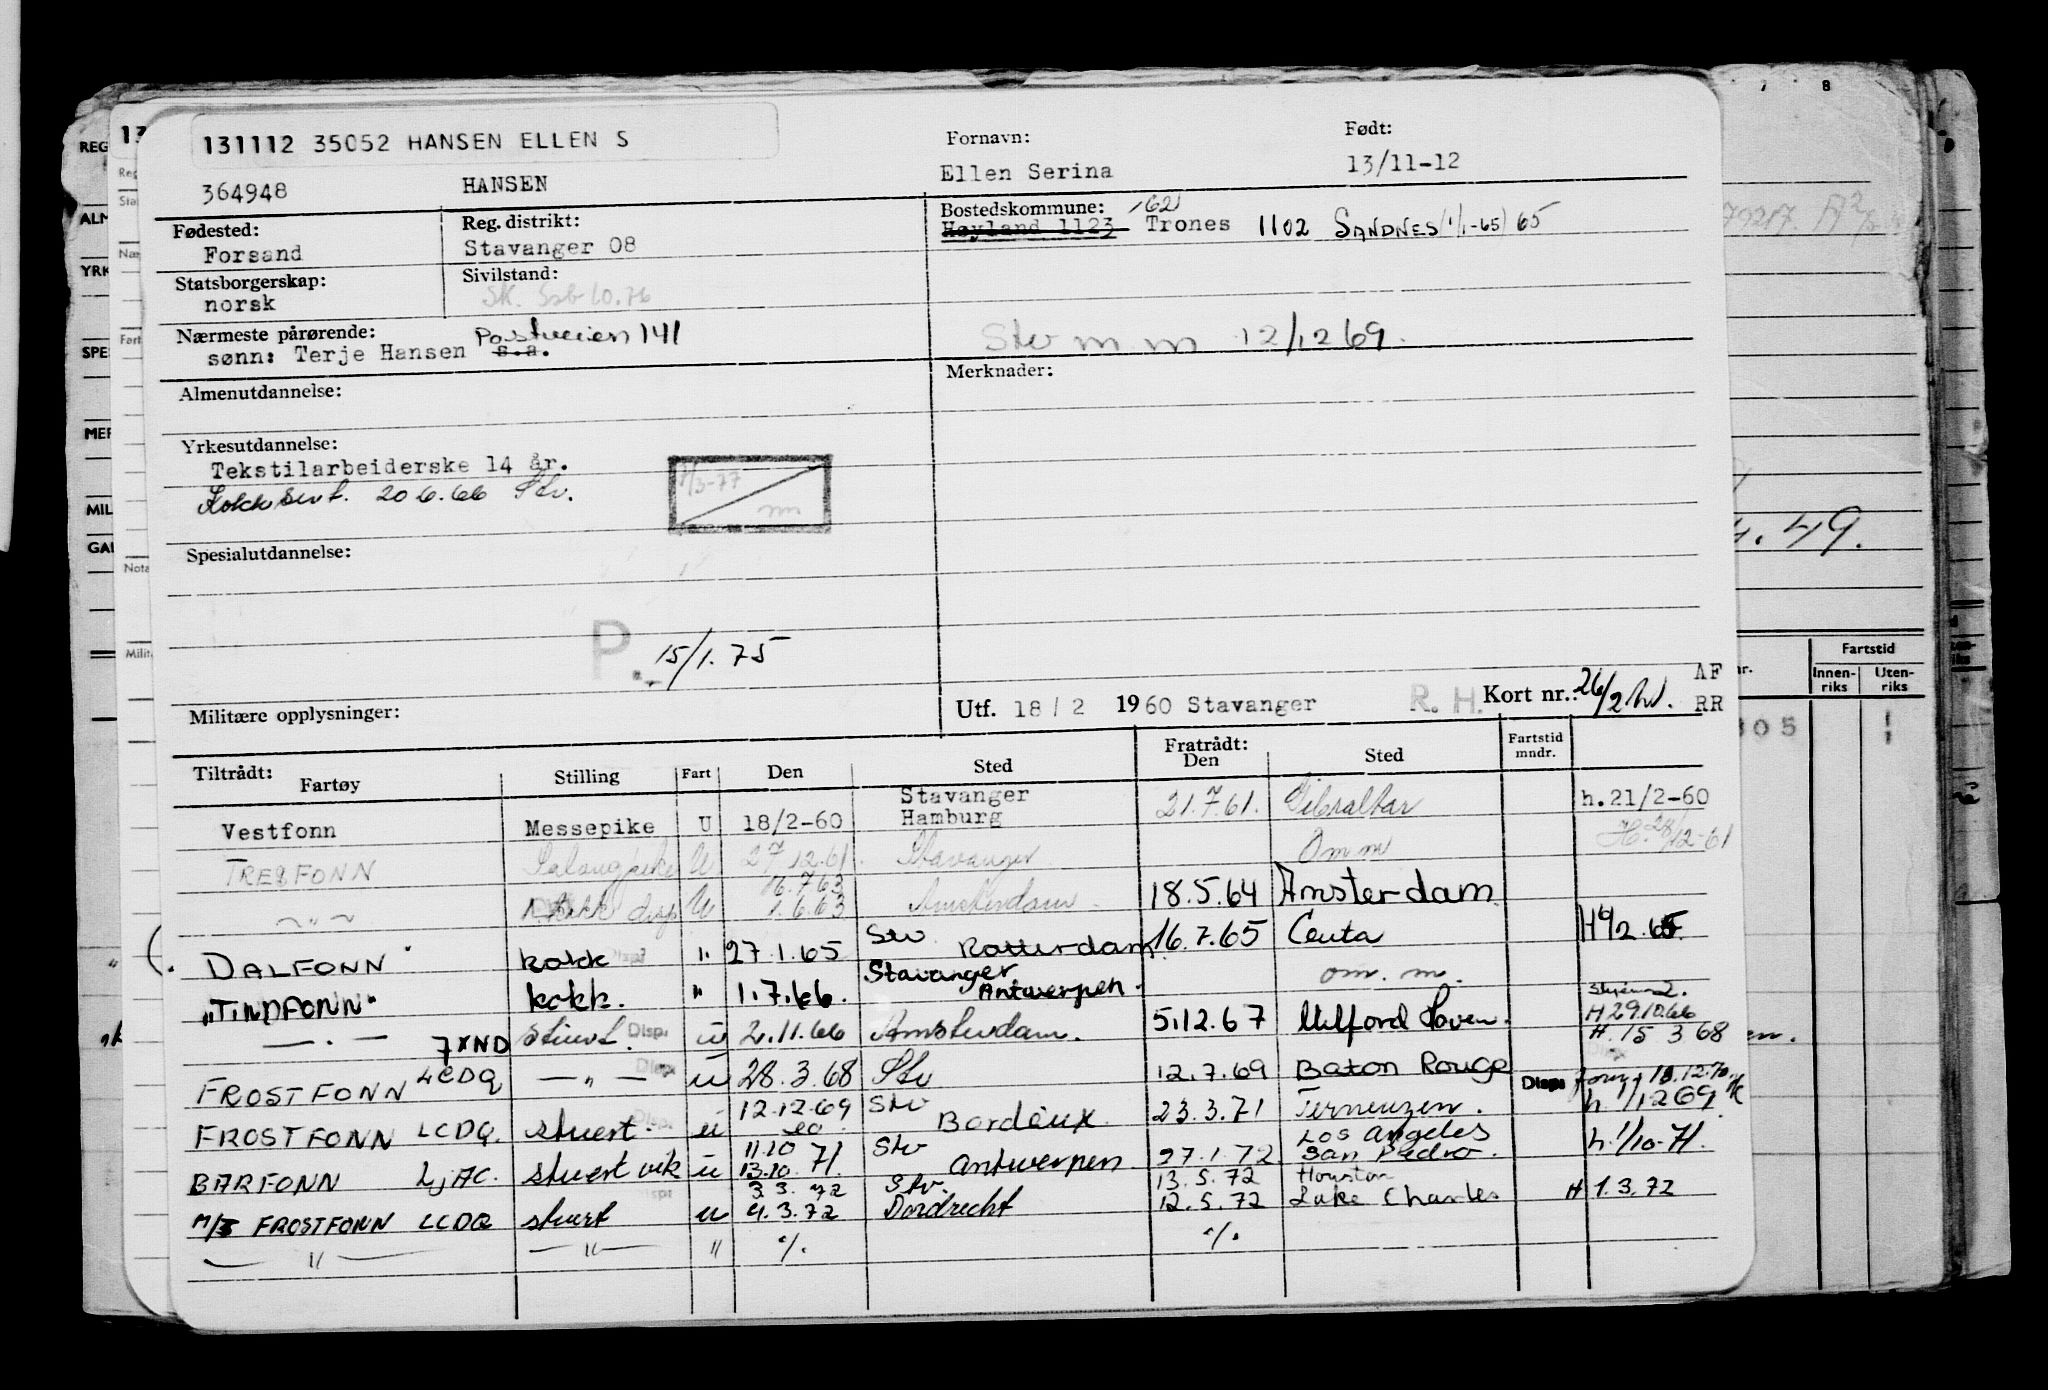 131112 35052 HANSEN ELLEN S
364948 HANSEN
Fornavn:
Ellen Serina
Født:
13/11-12
Fødested:
Forsand
Reg. distrikt:
Stavanger 08
Bostedskommune:
Høyland 1123 Trones 1102 SANDNES (1/1-65) 65
Statsborgerskap:
norsk
Sivilstand:
Nærmeste pårørende:
sønn: Terje Hansen s.a. Postveien 141
Stv m m 12/12 69.
Almenutdannelse:
Merknader:
Yrkesutdannelse:
Tekstilarbeiderske 14 år.
Kokk sert. 20 6.66 Stv.
1/3-77
Spesialutdannelse:
P. 15/1.75
Militære opplysninger:
Utf. 18/2 1960 Stavanger
R. H. Kort nr.: 26/2
AF
RR
Tiltrådt:
Fartøy Stilling Fart Den Sted
Fratrådt:
Den Sted
Fartstid
mndr.
Vestfonn Messepike U 18/2-60 Stavanger
Hamburg 21.7.61. Gibraltar h.21/2-60
TRESFONN Salongpike U 27.12.61. Stavanger Om m H. 28/12-61
— " — Kokk U 16.7.63
1.6.63 Amsterdam. 18.5.64 Amsterdam
DALFONN kokk " 27.1.65 Stv Rotterdam 16.7.65 Ceuta
"TINDFONN" kokk. " 1.7.66. Stavanger
Antwerpen. om. m.
— . — 7XND stuert. Disp: u 2.11.66 Amsterdam. 5.12.67 Milford Haven. H 29.10.66
H. 15 3 68
FROSTFONN LCDQ — " — Disp: u 28.3.68 Stv 12.7.69 Baton Rouge
FROSTFONN LCDQ. stuert. u 12.12.69 Stv Bordeaux 23.3.71 Terneuzen. Disp: h 1/12 69
BARFONN LJAC. stuert vik u 11.10
13.10 71. Stv Antwerpen 27.1.72 Los Angeles
San Pedro. h. 1/10-71.
M/S FROSTFONN LCDQ stuert u 3.3.72
4.3.72 Stv.
Dordrecht 13.5.72
12.5.72 Houston
Lake Charles H 1.3.72
— " — — " — " %. %.
Fartstid
Innen-
riks
Uten-
riks
7 8
49.